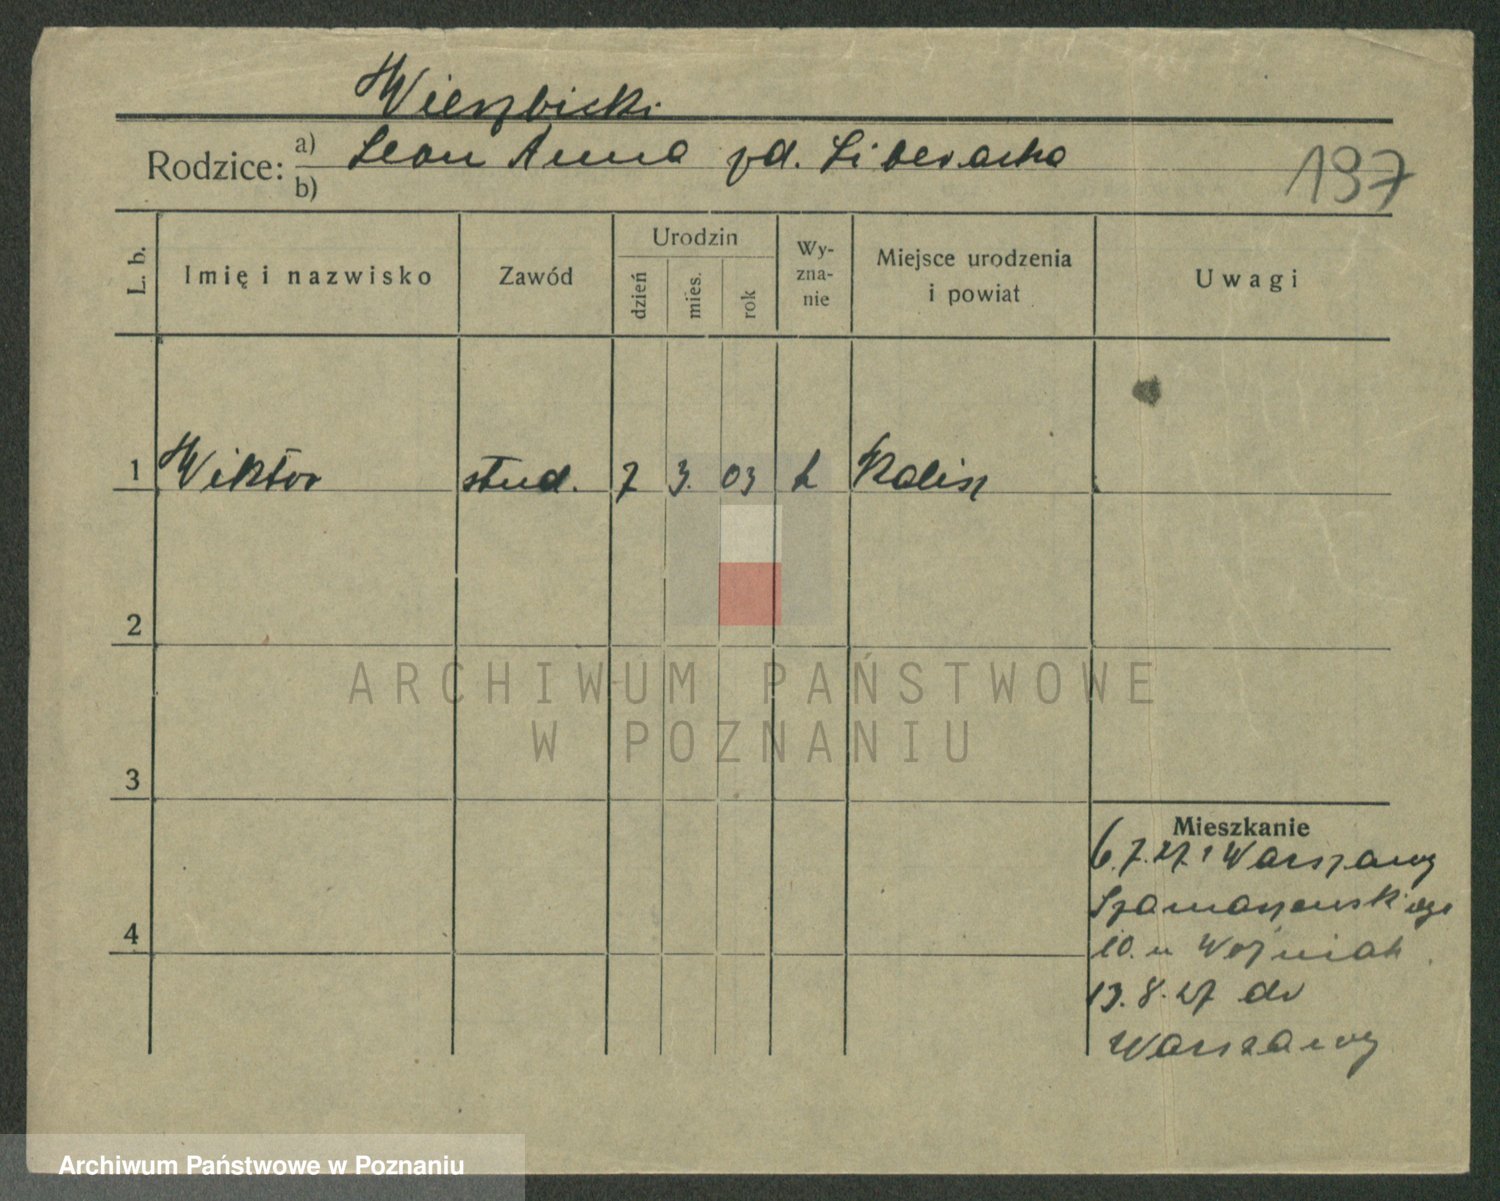 Wierzbicki
Rodzice: a) Leon Anna zd. Liberacka
b)
197
L. b.
Imię i nazwisko
Zawód
Urodzin
dzień
mies.
rok
Wy-
zna-
nie
Miejsce urodzenia
i powiat
Uwagi
1 Wiktor stud. 7 3. 03 k Kalisz
2
ARCHIWUM PAŃSTWOWE
W POZNANIU
3
Mieszkanie
6.7.27. z Warszawy
4
10. u Woźniak
13.8.27 do
Warszawy
Archiwum Państwowe w Poznaniu